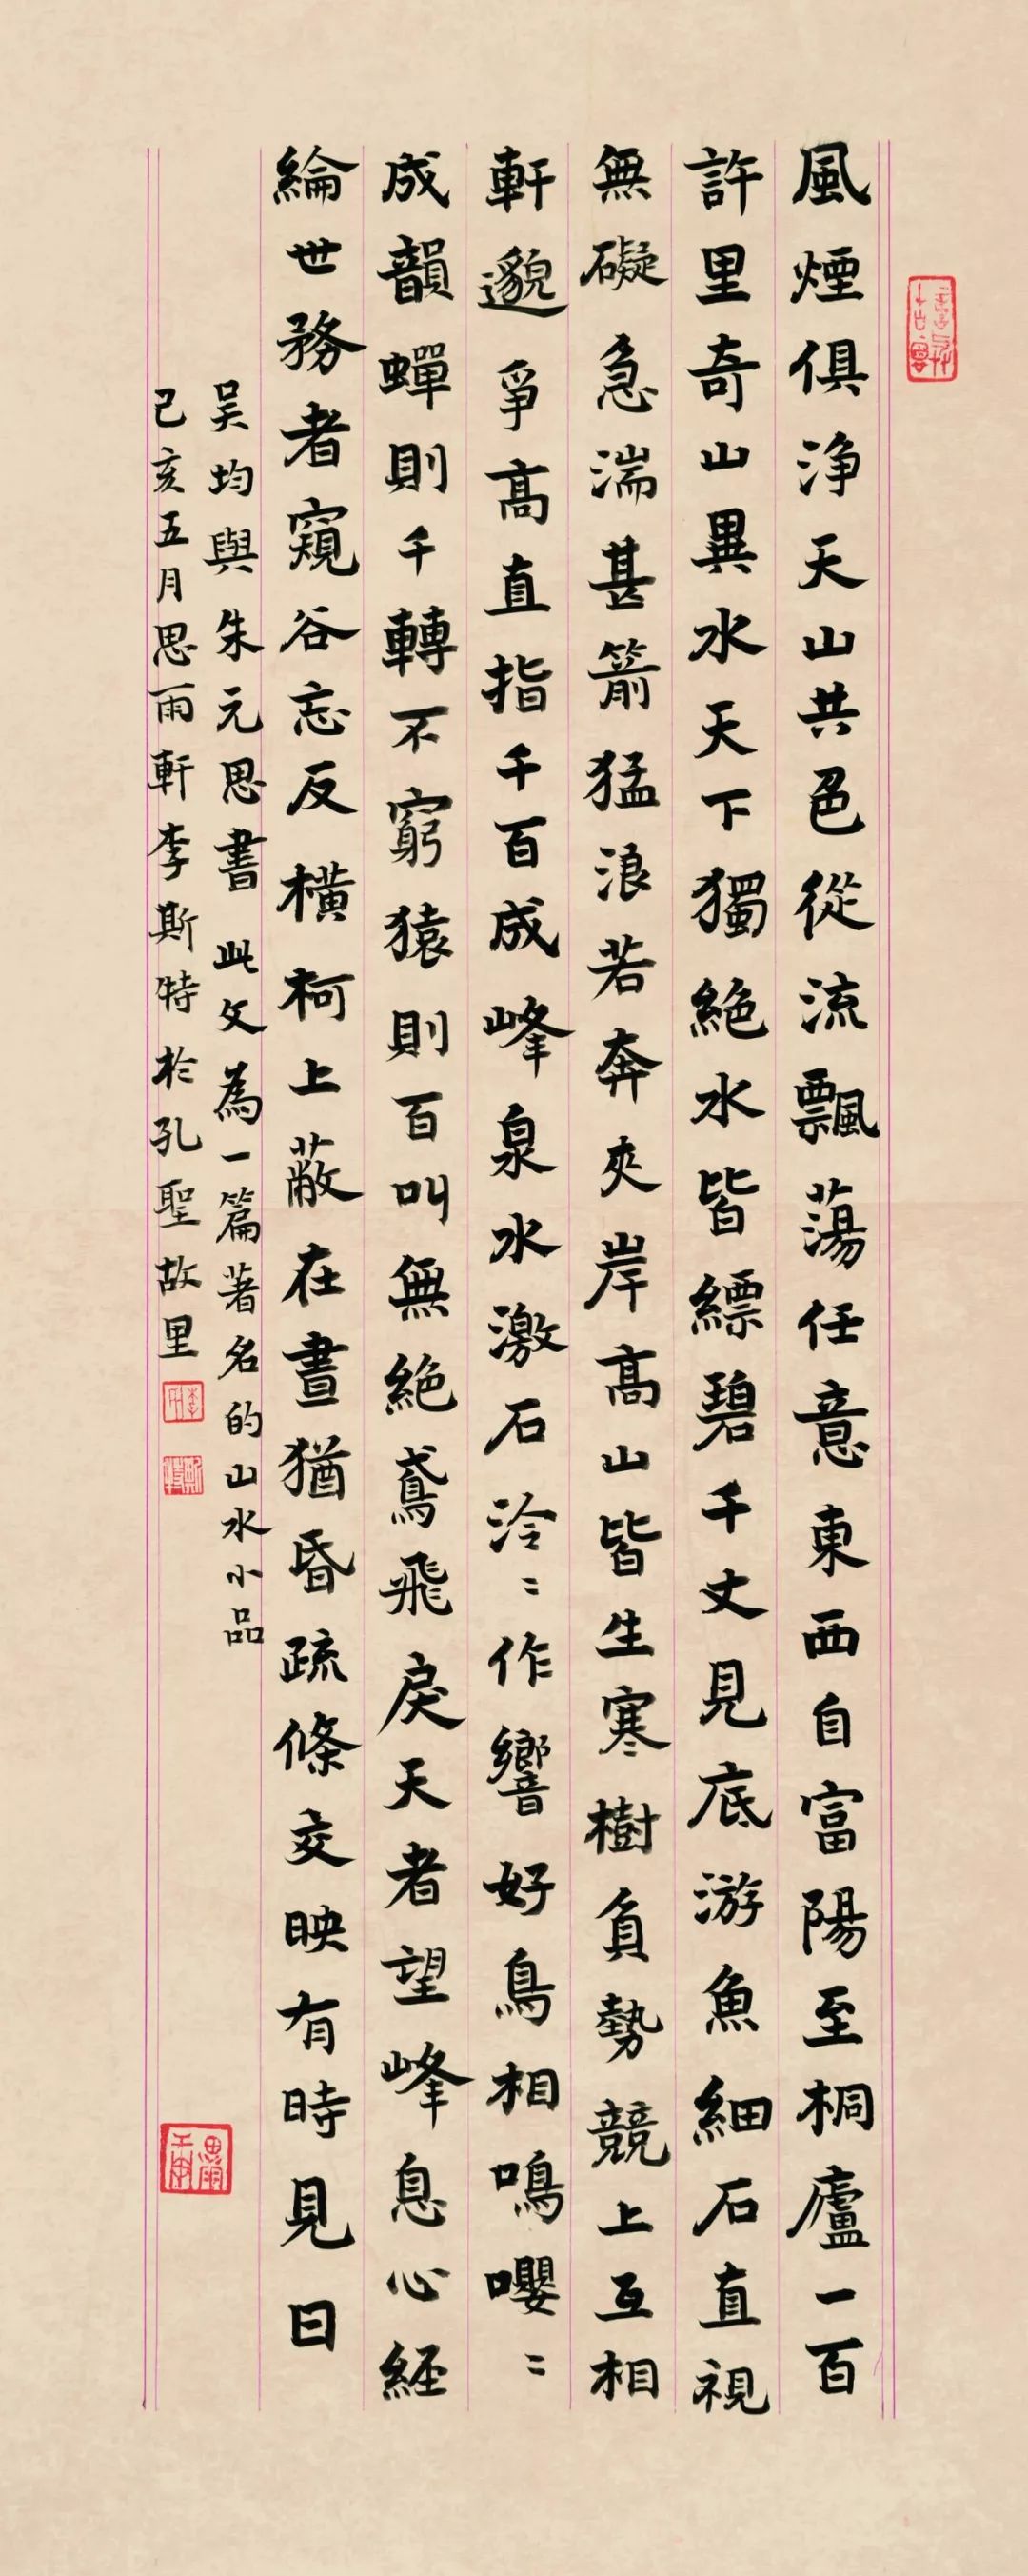 風煙俱浄天山共色從流飄蕩任意東西自富陽至桐廬一百
許里奇山異水天下獨絕水皆縹碧千丈見底游魚細石直視
無礙急湍甚箭猛浪若奔夾岸高山皆生寒樹負勢競上互相
軒邈爭高直指千百成峰泉水激石泠〻作響好鳥相鳴嚶〻
成韻蟬則千轉不窮猿則百叫無絕鳶飛戾天者望峰息心經
綸世務者窺谷忘反橫柯上蔽在晝猶昏疏條交映有時見日
吴均與朱元思書 此文為一篇著名的山水小品
己亥五月思雨軒李斯特於孔聖故里